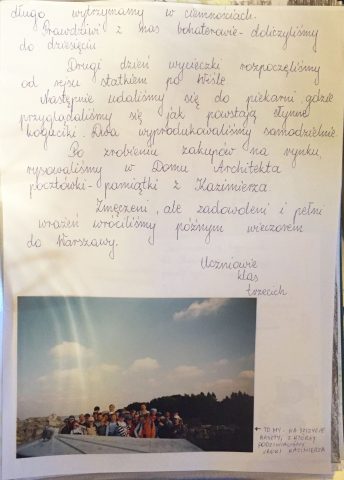 długo wytrzymamy w ciemnościach.
Prawdziwi z nas bohaterowie - doliczyliśmy
do dziesięciu
Drugi dzień wycieczki rozpoczęliśmy
od rejsu statkiem po Wiśle.
Następnie udaliśmy się do piekarni, gdzie
przyglądaliśmy się jak powstają słynne
koguciki. Dwa wyprodukowaliśmy samodzielnie.
Po zrobieniu zakupów na rynku,
rysowaliśmy w Domu Architekta
pocztówki - pamiątki z Kazimierza.
Zmęczeni, ale zadowoleni i pełni
wrażeń wróciliśmy późnym wieczorem
do Warszawy.
Uczniowie
klas
trzecich
← TO MY - NA SZCZYCIE
BASZTY, Z KTÓREJ
PODZIWIALIŚMY
UROKI KAZIMIERZA